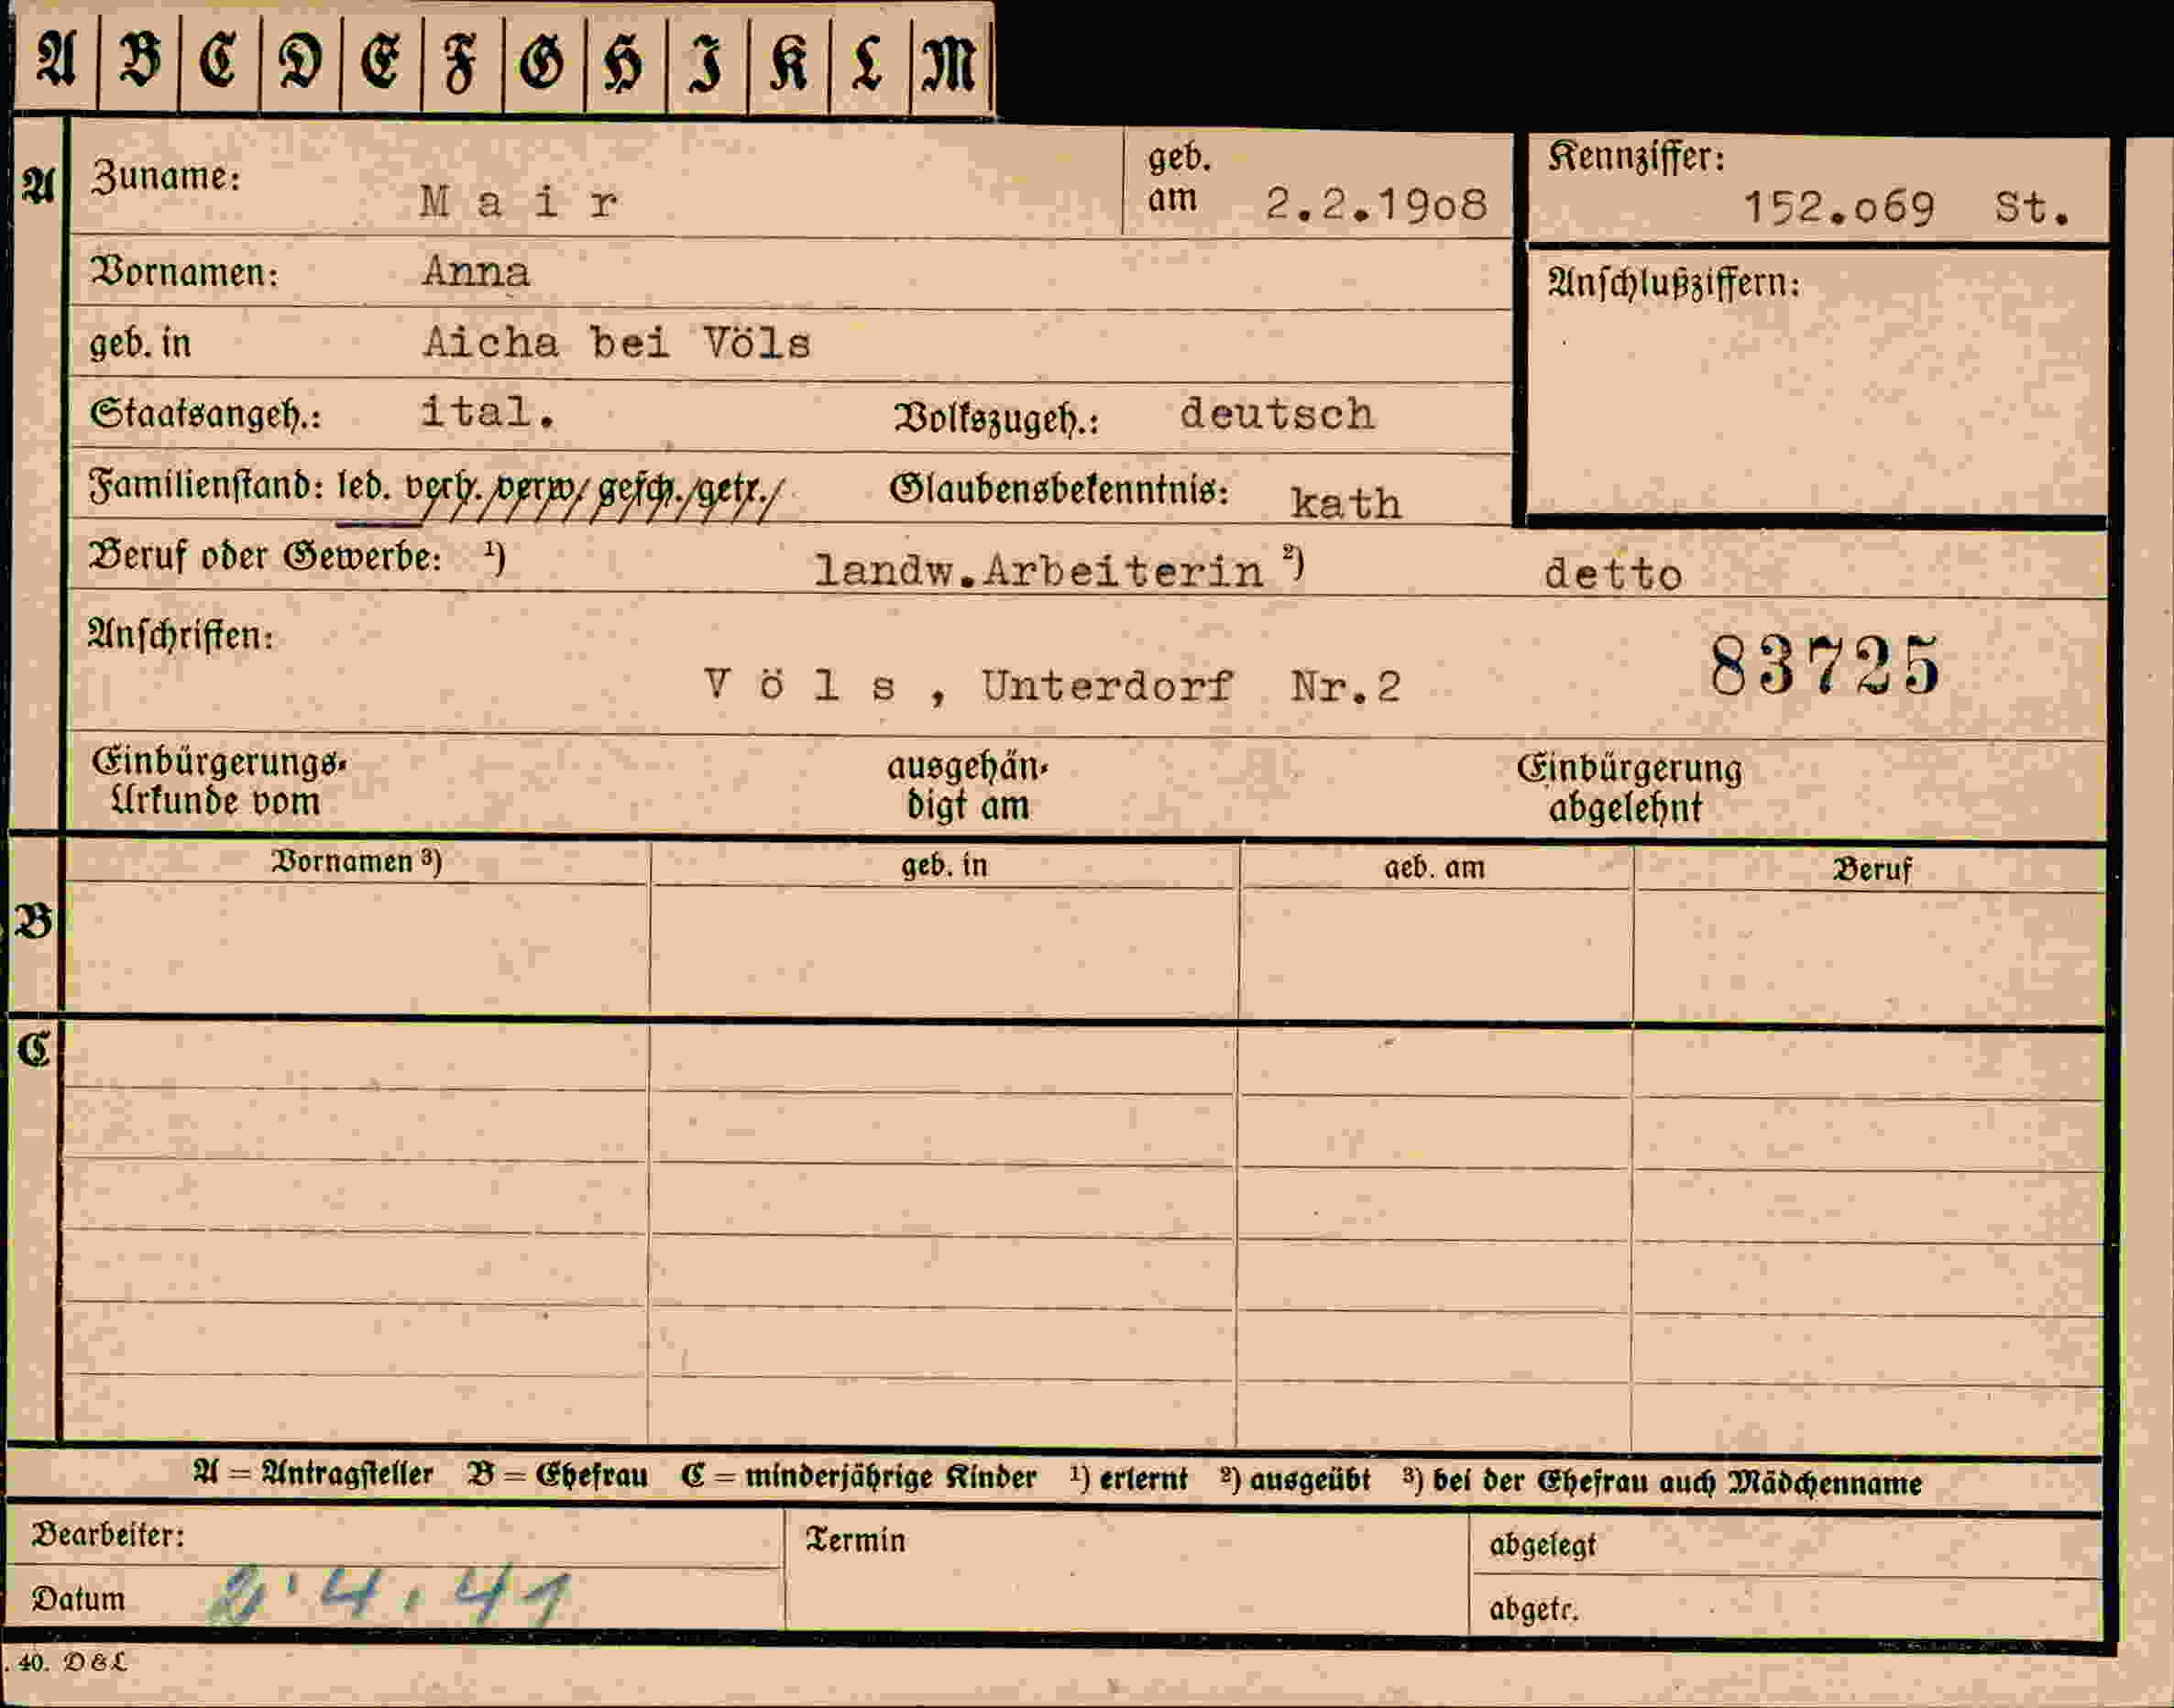 A B C D E F G H I K L M
A Zuname: Mair geb. am 2.2.1908 Kennziffer: 152.069 St.
Vornamen: Anna Anschlußziffern:
geb. in Aicha bei Völs
Staatsangeh.: ital. Volkszugeh.: deutsch
Familienstand: led. verh. verw. gesch. getr. Glaubensbekenntnis: kath
Beruf oder Gewerbe: ¹) landw.Arbeiterin ²) detto
Anschriften:
Völs, Unterdorf Nr.2 83725
Einbürgerungs- ausgehän- Einbürgerung
Urkunde vom digt am abgelehnt
Vornamen ³) geb. in geb. am Beruf
B
C
A = Antragsteller B = Ehefrau C = minderjährige Kinder ¹) erlernt ²) ausgeübt ³) bei der Ehefrau auch Mädchenname
Bearbeiter: Termin abgelegt
Datum 2.4.41 abgetr.
. 40. D&L